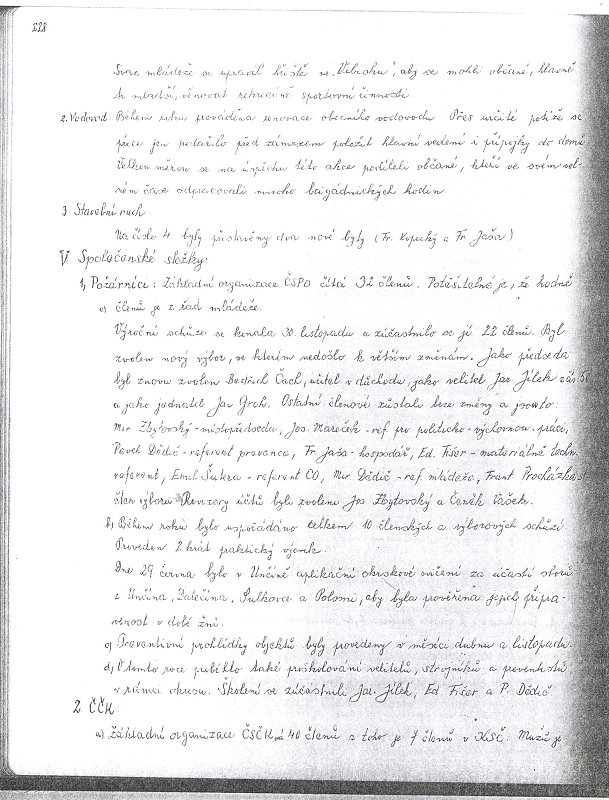 228
Svaz mládeže se upravil hřiště ve "Vilišku", aby se mohli občané, hlavně
ti mladší, věnovat rekreačně sportovní činnosti.
2. Vodovod Během roku prováděna renovace obecního vodovodu Přes určité potíže se
přece jen podařilo před zámrzem položit hlavní vedení i přípojky do domů
Velkou měrou se na úspěchu této akce podíleli občané, kteří ve svém vol-
ném čase odpracovali mnoho brigádnických hodin
3 Stavební ruch
Na čísle 4 byly přistavěny dva nové byty (Fr. Kopecký a Fr. Jaša)
V. Společenské složky:
1, Požárníci: Základní organizace ČSPO čítá 32 členů. Potěšitelné je, že hodně
a) členů je z řad mládeže.
Výroční schůze se konala 30 listopadu a zúčastnilo se jí 22 členů. Byl
zvolen nový výbor, ve kterém nedošlo k větším změnám. Jako předseda
byl znova zvolen Bedřich Čach, učitel v důchodu, jako velitel Jar Jílek
a jako jednatel Jar Groh. Ostatní členové zůstali beze změny a jsou to:
Mir Zbytovský - místopředseda, Jos. Mareček - ref pro politicko-výchovnou práce,
Pavel Dědič - referent prevence, Fr Jaša - hospodář, Ed. Fišer - materiálně techn.
referent, Emil Šukra - referent CO, Mir Dědič - ref mládeže, Frant Procházka st
člen výboru Revizory účtů byli zvoleni Jos Zbytovský a Čeněk Vašek.
b) Během roku bylo uspořádáno celkem 10 členských a výborových schůzí
Proveden 2 krát praktický výcvik.
Dne 29 června bylo v Unčíně aplikační okrskové cvičení za účasti sborů
z Unčína, Pulkovce a Polomi, aby byla prověřena jejich připra-
venost v době žní.
c) Preventivní prohlídky objektů byly provedeny v měsíci dubnu a listopadu.
d) V tomto roce proběhlo také proškolování velitelů, strojníků a preventistů
v rámci okresu. Školení se zúčastnili Jar. Jílek, Ed Fišer a P. Dědič
2 ČČK
a) Základní organizace ČSČK má 40 členů z toho je 7 členů v KSČ. Mužů je